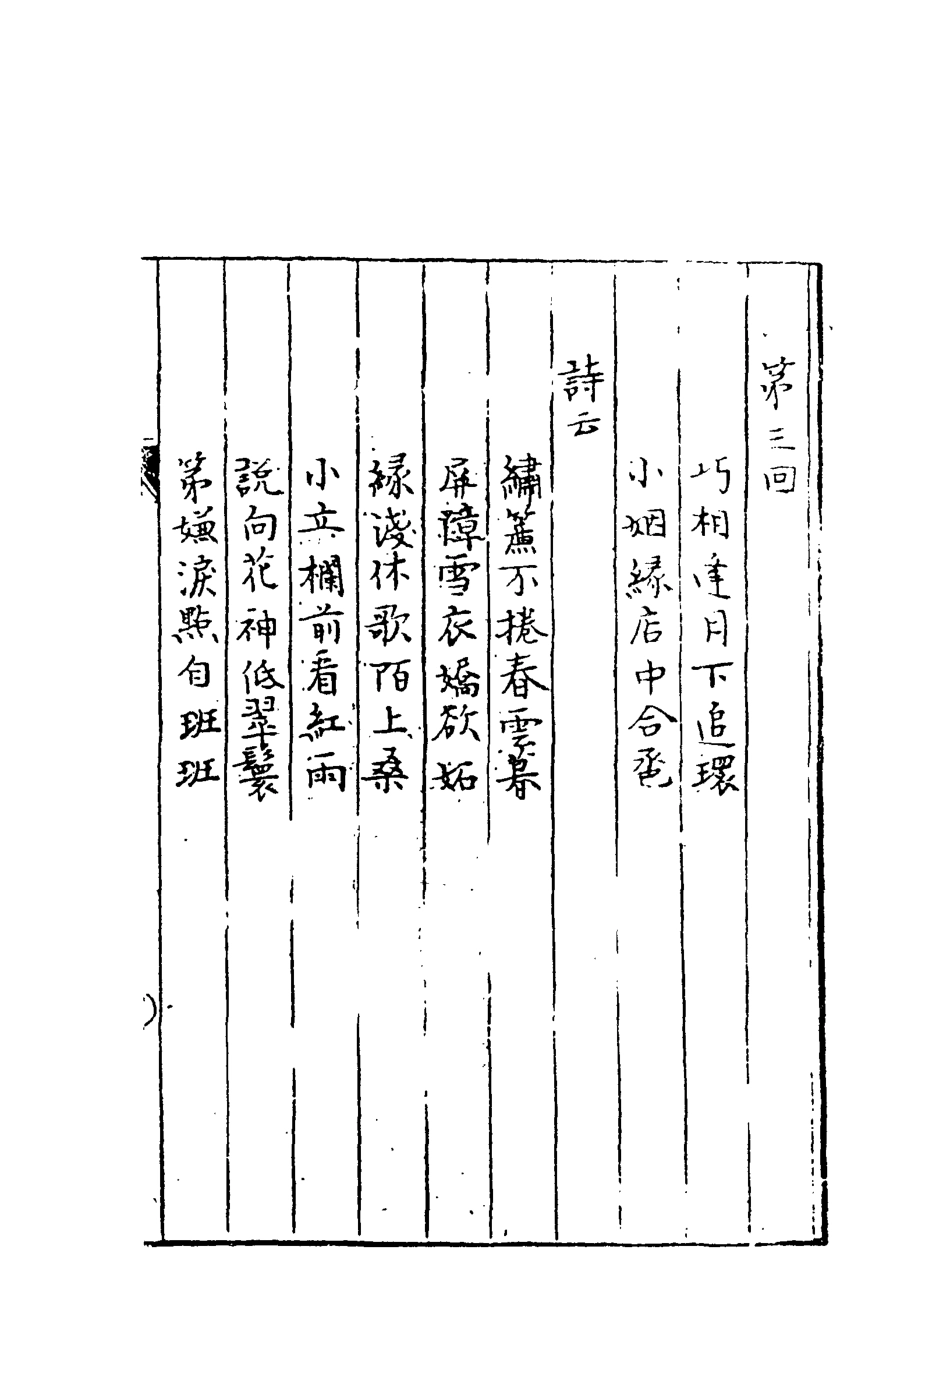 第三回
巧相逢月下追環
小姻緣店中合巹
詩云
繡簾不捲春雲暮
屏障雪衣嬌欲妬
緑淺休歌陌上桑
小立欄前看紅雨
說向花神低翠鬟
第嫌淚點自班班